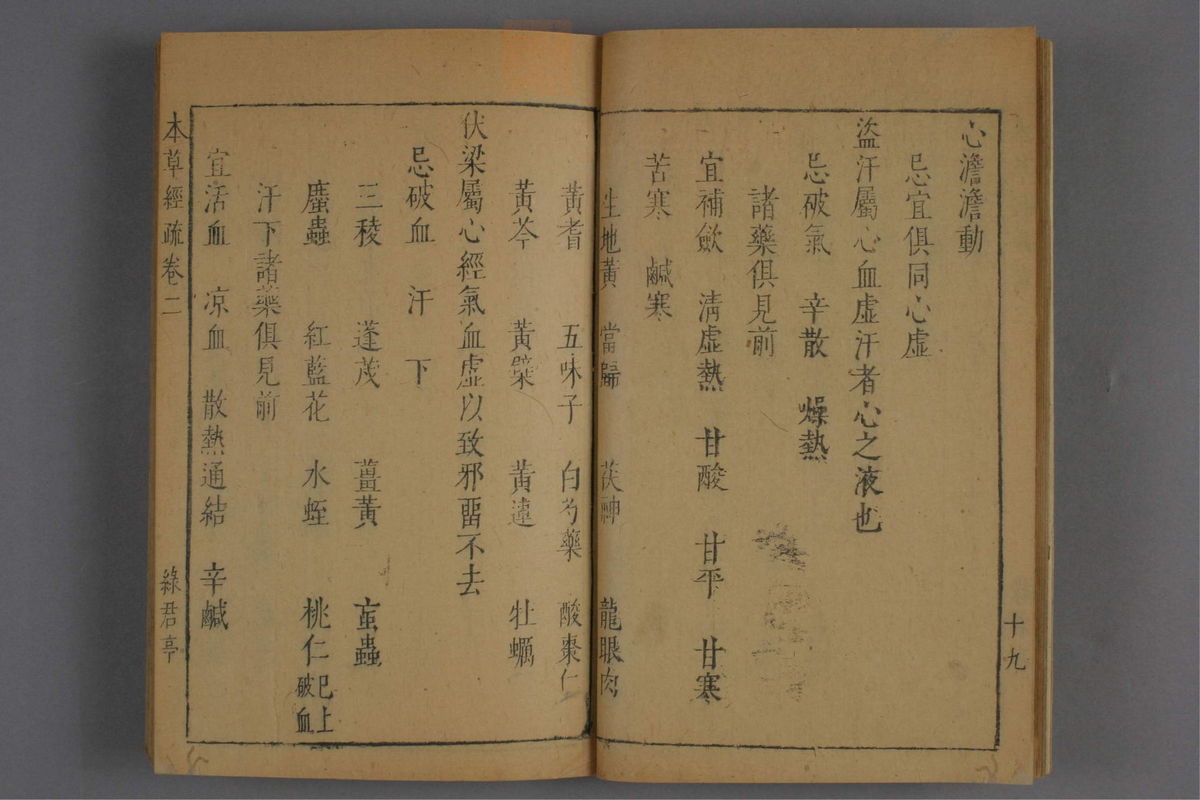 心澹澹動
忌宜俱同心虛
盜汗屬心血虛汗者心之液也
忌破氣　辛散　燥熱
諸藥俱見前
宜補歛　清虛熱　甘酸　甘平　甘寒
苦寒　鹹寒
生地黃　當歸　茯神　龍眼肉
黃耆　五味子　白芍藥　酸棗仁
黃芩　黃檗　黃連　牡蠣
伏梁屬心經氣血虛以致邪畱不去
忌破血　汗　下
三稜　蓬茂　薑黃　䖟蟲
䗪蟲　紅藍花　水蛭　桃仁巳上破血
汗下諸藥俱見前
宜活血　凉血　散熱通結　辛鹹
本草經疏卷二　綠君亭
十九